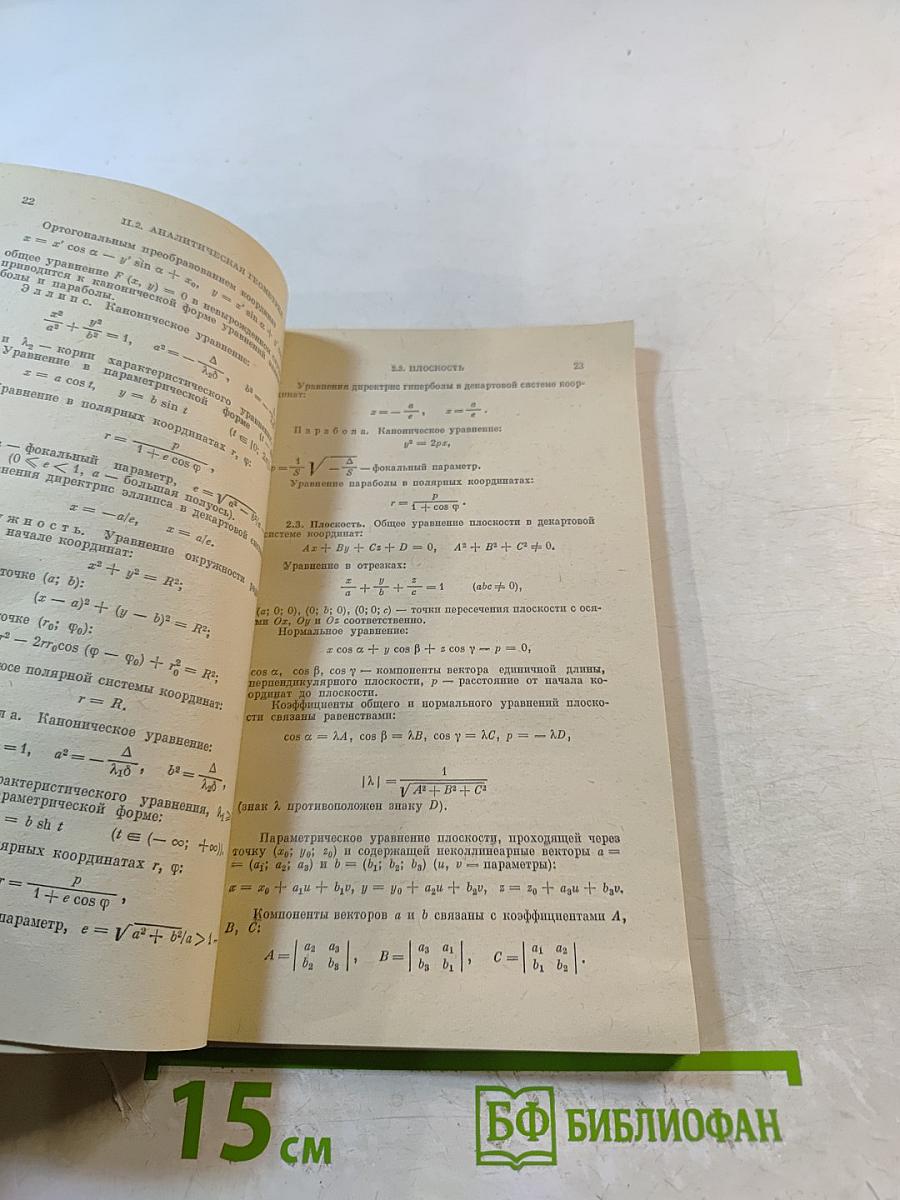 22
II.2. АНАЛИТИЧЕСКАЯ ГЕОМЕТРИЯ
Ортогональным преобразованием координат
x = x′ cos α — y′ sin α + x₀, y = x′ sin α +
общее уравнение F (x, y) = 0 в невырожденном
приводится к канонической форме уравнений
болы и параболы.
Эллипс. Каноническое уравнение:
x²/a² + y²/b² = 1, a² = — Δ/λ₂δ, b² = —
и λ₂ — корни характеристического уравнения
Уравнение в параметрической форме
x = a cos t, y = b sin t (t ∈ [0;
равнение в полярных координатах r, φ:
r = p/(1 + e cos φ),
— фокальный параметр, e = √a² —
(0 ⩽ e < 1, a — большая полуось).
нения директрис эллипса в декартовой
x = —a/e, x = a/e.
ужность. Уравнение окружности
начале координат:
x² + y² = R²;
точке (a; b):
(x — a)² + (y — b)² = R²;
точке (r₀; φ₀):
r² — 2rr₀cos (φ — φ₀) + r₀² = R²;
юсе полярной системы координат:
r = R.
ла. Каноническое уравнение:
= 1, a² = — Δ/λ₁δ, b² = Δ/λ₂δ,
рактеристического уравнения, λ₁ >
раметрической форме:
= b sh t (t ∈ (— ∞; +∞)),
лярных координатах r, φ:
r = p/(1 + e cos φ),
параметр, e = √(a² + b²)/a > 1.
2.3. ПЛОСКОСТЬ 23
Уравнения директрис гиперболы в декартовой системе коор-
динат:
x = — a/e, x = a/e.
Парабола. Каноническое уравнение:
y² = 2px,
p = 1/S √(— Δ/S) — фокальный параметр.
Уравнение параболы в полярных координатах:
r = p/(1 + cos φ).
2.3. Плоскость. Общее уравнение плоскости в декартовой
системе координат:
Ax + By + Cz + D = 0, A² + B² + C² ≠ 0.
Уравнение в отрезках:
x/a + y/b + z/c = 1 (abc ≠ 0),
(a; 0; 0), (0; b; 0), (0; 0; c) — точки пересечения плоскости с ося-
ми Ox, Oy и Oz соответственно.
Нормальное уравнение:
x cos α + y cos β + z cos γ — p = 0,
cos α, cos β, cos γ — компоненты вектора единичной длины,
перпендикулярного плоскости, p — расстояние от начала ко-
ординат до плоскости.
Коэффициенты общего и нормального уравнений плоско-
сти связаны равенствами:
cos α = λA, cos β = λB, cos γ = λC, p = — λD,
|λ| = 1/√(A² + B² + C²)
(знак λ противоположен знаку D).
Параметрическое уравнение плоскости, проходящей через
точку (x₀; y₀; z₀) и содержащей неколлинеарные векторы a =
= (a₁; a₂; a₃) и b = (b₁; b₂; b₃) (u, v — параметры):
x = x₀ + a₁u + b₁v, y = y₀ + a₂u + b₂v, z = z₀ + a₃u + b₃v.
Компоненты векторов a и b связаны с коэффициентами A,
B, C:
A = |a₂ a₃; b₂ b₃|, B = |a₃ a₁; b₃ b₁|, C = |a₁ a₂; b₁ b₂|.
15 см
БФ БИБЛИОФАН